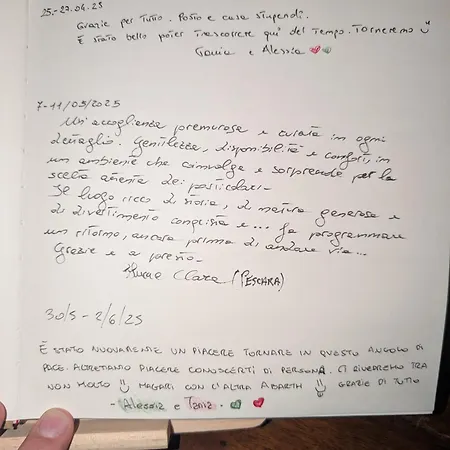 25.-27.04.25
Grazie per tutto. Posto e casa stupendi.
È stato bello poter trascorrere qui del tempo. Torneremo
Tania e Alessia
7-11/05/2025
Un'accoglienza premurosa e curata in ogni
dettaglio. Gentilezza, disponibilità e comfort, in
un ambiente che coinvolge e sorprende per la
scelta attenta dei particolari.
Il luogo ricco di storia, di natura generosa e
di divertimento conquista e... fa programmare
un ritorno, ancora prima di andare via...
Grazie e a presto.
Clara (PESCARA)
30/5 - 2/6/25
È STATO NUOVAMENTE UN PIACERE TORNARE IN QUESTO ANGOLO DI
PACE. ALTRETTANTO PIACERE CONOSCERTI DI PERSONA. CI RIVEDREMO TRA
NON MOLTO MAGARI CON L'ALTRA ABARTH GRAZIE DI TUTTO
- Alessia e Tania.